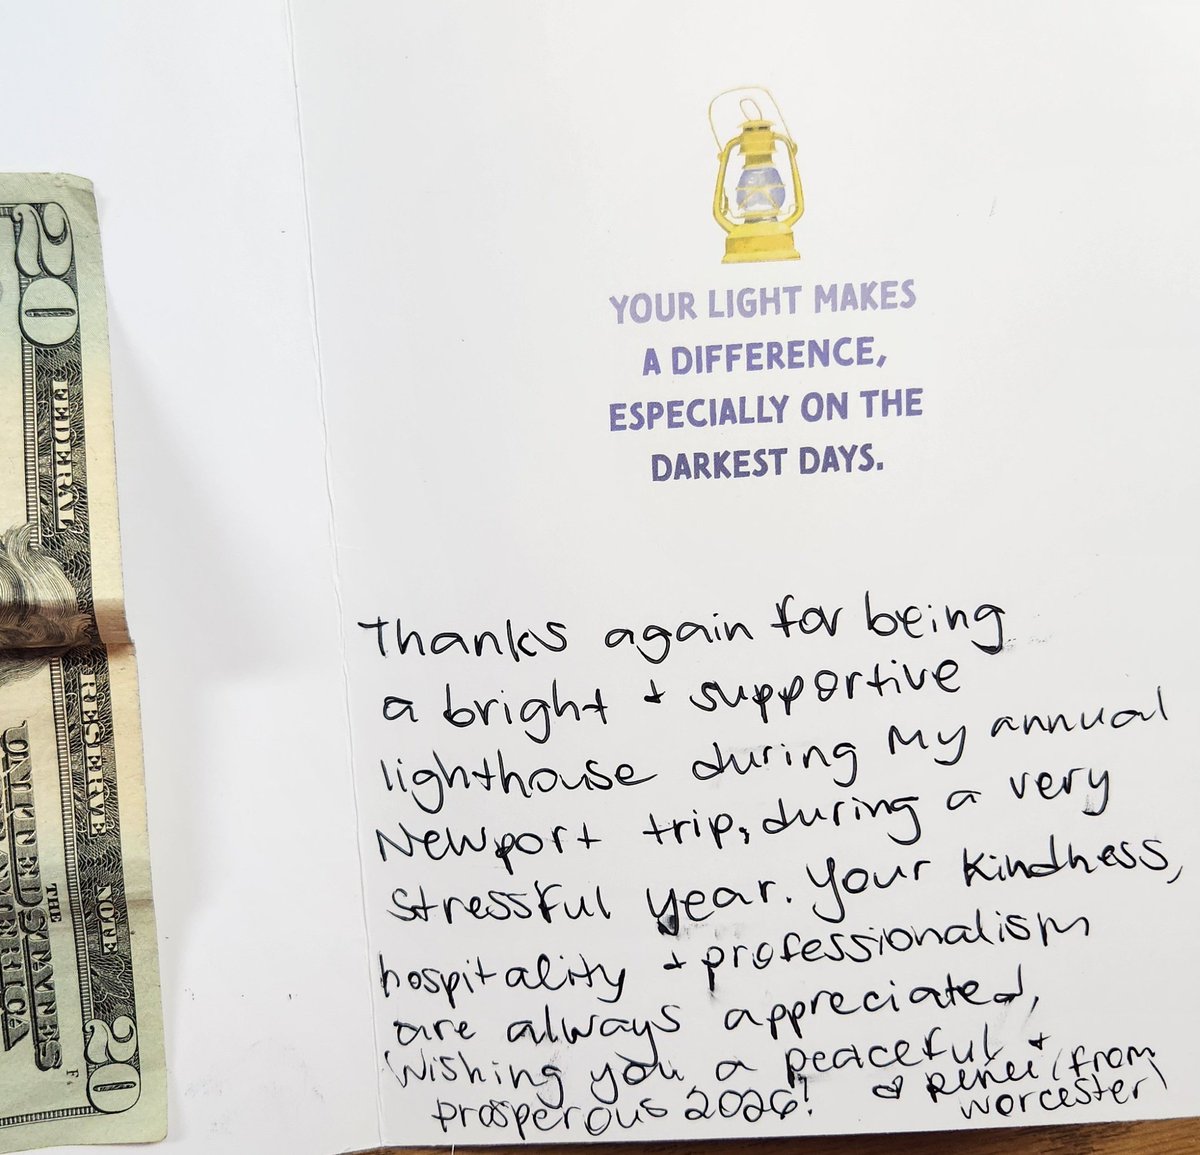 YOUR LIGHT MAKES
A DIFFERENCE,
ESPECIALLY ON THE
DARKEST DAYS.
Thanks again for being
a bright + supportive
lighthouse during my annual
Newport trip, during a very
stressful year. Your kindness,
hospitality + professionalism
are always appreciated,
Wishing you a peaceful +
prosperous 2026!
♡ Renee (from
Worcester)
20
FEDERAL
RESERVE
NOTE
THE
UNITED STATES
AMERICA
20